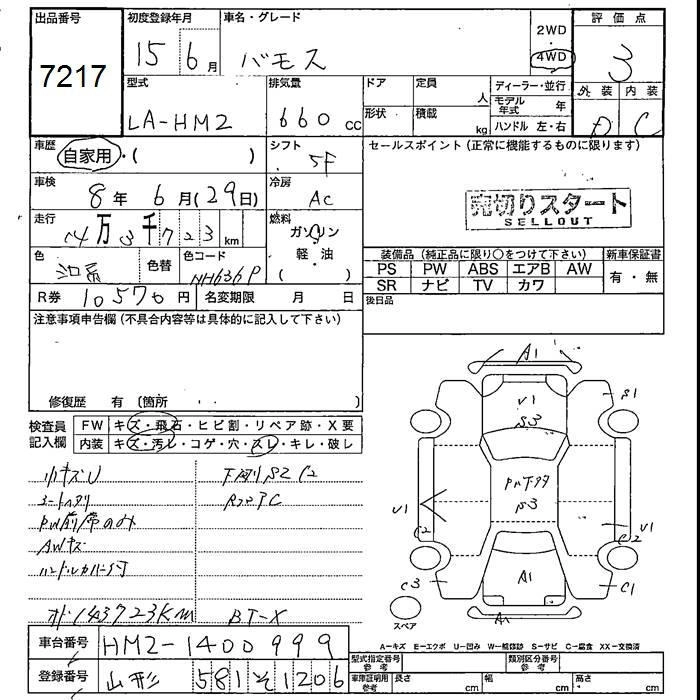 出品番号
7217
初度登録年月
15 6月
車名・グレード
バモス
2WD
4WD
評価点
3
外装 内装
D C
型式
LA-HM2
排気量
660 CC
ドア
定員
人
形状
積載
kg
ディーラー・並行
モデル年式 年
ハンドル 左・右
車歴
自家用・( )
シフト
5F
車検
8年 6月(29日)
冷房
AC
走行
14万3千723km
燃料
ガソリン
軽・油
( )
色
色替
色コード
NH636P
R券 10570円
名変期限 月 日
セールスポイント(正常に機能するものに限ります)
売切りスタート
SELLOUT
装備品(純正品に限り○をつけて下さい)
新車保証書
PS PW ABS エアB AW
SR ナビ TV カワ
有・無
後日品
注意事項申告欄(不具合内容等は具体的に記入して下さい)
修復歴 有(箇所
検査員記入欄
FW キズ・飛石・ヒビ割・リペア跡・X要
内装 キズ・汚レ・コゲ・穴・スレ・キレ・破レ
小キズU
下廻りS2 C2
シートヘタリ
PW前席のみ
AWキズ
オド143723KM
BT-X
A1
V1
S3
S1
S3
V1
C2
V1
C2
C3
A1
C1
A1
スペア
A-キズ E-エクボ U-凹み W-補修跡 S-サビ C-腐食 XX-交換済
車台番号
HM2-1400999
登録番号
山形 581 そ 1206
型式指定番号
参考
類別区分番号
参考
車庫証明用
参考
長さ cm
幅 cm
高さ cm